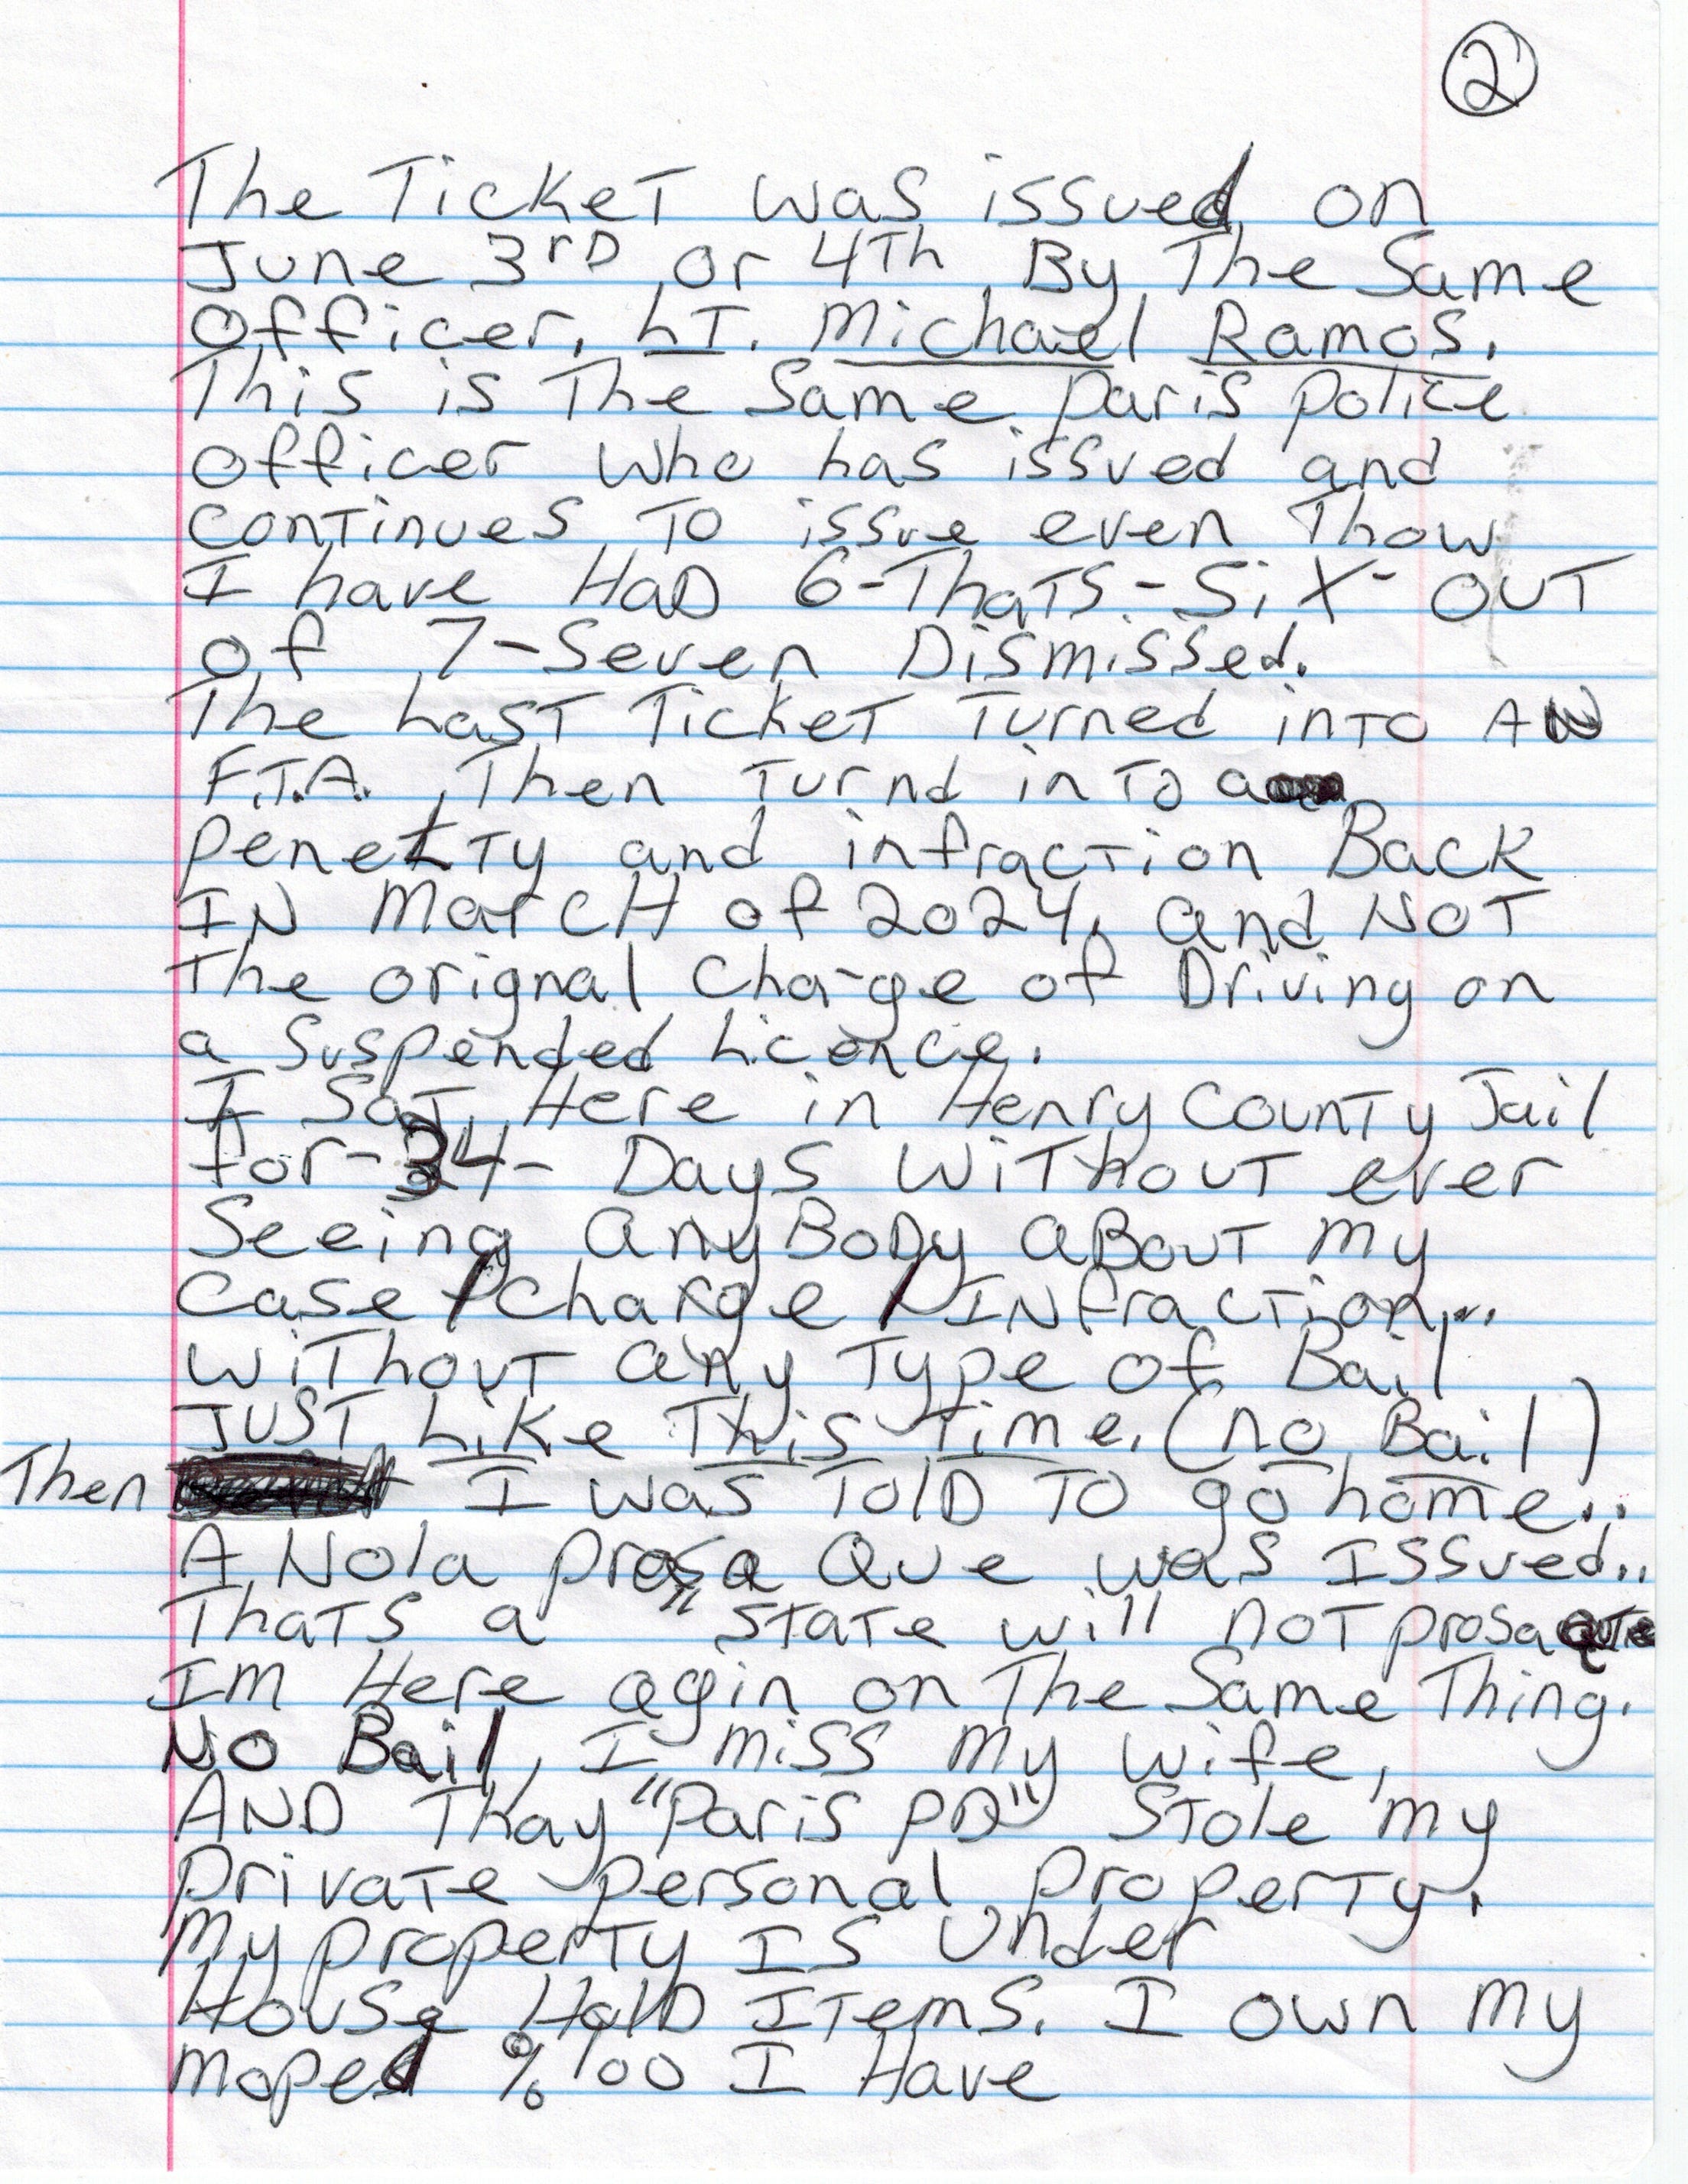 2
The Ticket was issued on
June 3rD or 4Th By The Same
officer, LT. Michael Ramos.
This is The Same Paris Police
officer who has issued and
continues To issue even Thow
I have HaD 6-ThaTs-SiX- OUT
of 7-Seven Dismissed.
The LasT TickeT Turned inTo AN
F.T.A. Then Turnd inTo a
PeneLTy and infraction Back
IN MarcH of 2024, and NOT
The orignal Charge of Driving on
a Suspended Licence.
I SaT Here in Henry County Jail
for-34- Days WiThouT ever
Seeing anyBoDy aBouT my
case/Charge/INfracTion...
WiThouT any Type of Bail
JUST Like This Time. (no Bail)
Then I was TolD To go home...
A Nola prosa Que was ISSued..
ThaTs a "STaTe will noT prosaQuTe
Im Here agin on The Same Thing.
No Bail, I miss my wife,
AND Thay "Paris PD" STole my
private personal property.
My properTy IS Under
House HolD ITems. I own my
moped %100 I Have